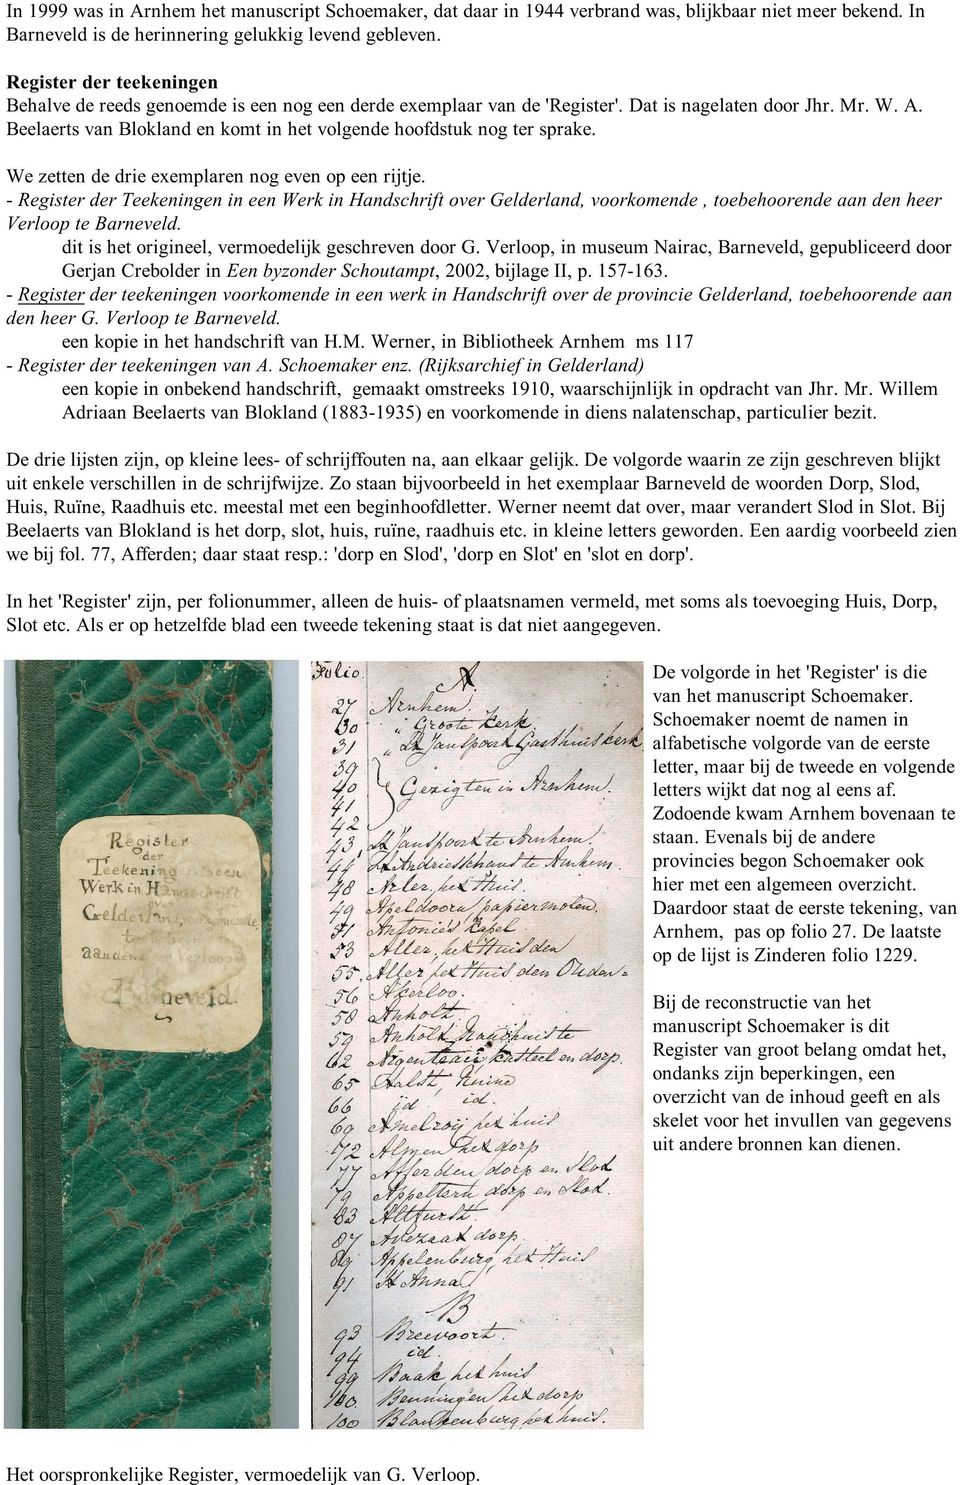 In 1999 was in Arnhem het manuscript Schoemaker, dat daar in 1944 verbrand was, blijkbaar niet meer bekend. In
Barneveld is de herinnering gelukkig levend gebleven.
Register der teekeningen
Behalve de reeds genoemde is een nog een derde exemplaar van de 'Register'. Dat is nagelaten door Jhr. Mr. W. A.
Beelaerts van Blokland en komt in het volgende hoofdstuk nog ter sprake.
We zetten de drie exemplaren nog even op een rijtje.
- Register der Teekeningen in een Werk in Handschrift over Gelderland, voorkomende , toebehoorende aan den heer
Verloop te Barneveld.
dit is het origineel, vermoedelijk geschreven door G. Verloop, in museum Nairac, Barneveld, gepubliceerd door
Gerjan Crebolder in Een byzonder Schoutampt, 2002, bijlage II, p. 157-163.
- Register der teekeningen voorkomende in een werk in Handschrift over de provincie Gelderland, toebehoorende aan
den heer G. Verloop te Barneveld.
een kopie in het handschrift van H.M. Werner, in Bibliotheek Arnhem ms 117
- Register der teekeningen van A. Schoemaker enz. (Rijksarchief in Gelderland)
een kopie in onbekend handschrift, gemaakt omstreeks 1910, waarschijnlijk in opdracht van Jhr. Mr. Willem
Adriaan Beelaerts van Blokland (1883-1935) en voorkomende in diens nalatenschap, particulier bezit.
De drie lijsten zijn, op kleine lees- of schrijffouten na, aan elkaar gelijk. De volgorde waarin ze zijn geschreven blijkt
uit enkele verschillen in de schrijfwijze. Zo staan bijvoorbeeld in het exemplaar Barneveld de woorden Dorp, Slod,
Huis, Ruïne, Raadhuis etc. meestal met een beginhoofdletter. Werner neemt dat over, maar verandert Slod in Slot. Bij
Beelaerts van Blokland is het dorp, slot, huis, ruïne, raadhuis etc. in kleine letters geworden. Een aardig voorbeeld zien
we bij fol. 77, Afferden; daar staat resp.: 'dorp en Slod', 'dorp en Slot' en 'slot en dorp'.
In het 'Register' zijn, per folionummer, alleen de huis- of plaatsnamen vermeld, met soms als toevoeging Huis, Dorp,
Slot etc. Als er op hetzelfde blad een tweede tekening staat is dat niet aangegeven.
Register
der
Teekeningen een
Werk in Handschrift
over
Gelderland, voorkomende,
aanden Verloop te
Barneveld.
Folio. A.
27 Arnhem.
30 " Groote Kerk.
31 " St Janspoort Gasthuiskerk
39
40 Gezigten in Arnhem.
41
42
43 St Janspoort te Arnhem
44 St Andrieskhans te Arnhem.
48 Arler, het Huis.
49 Apeldoorn, papiermolen.
51 Antonies Kapel
53 Aller, het Huis den
55. Aller het Huis den Ouden=
56 Akerloo.
58 Anholt.
59 Anholt, Raadhuis te
62 Argenteau, kasteel en dorp.
65 Aalst, Ruine
66 id. id.
69 Amelrooij het huis
72 Almen het dorp
77 Afferden dorp en Slod
79 Appeltern dorp en Slod.
83 Althurst.
87 Avezaat dorp.
89 Appelenburg, het Huis
91 St Anna
B
93 Breevoort.
94 id.
99 Baak, het huis
100 Benningen het dorp
100 Blankenburg het huis.
De volgorde in het 'Register' is die
van het manuscript Schoemaker.
Schoemaker noemt de namen in
alfabetische volgorde van de eerste
letter, maar bij de tweede en volgende
letters wijkt dat nog al eens af.
Zodoende kwam Arnhem bovenaan te
staan. Evenals bij de andere
provincies begon Schoemaker ook
hier met een algemeen overzicht.
Daardoor staat de eerste tekening, van
Arnhem, pas op folio 27. De laatste
op de lijst is Zinderen folio 1229.
Bij de reconstructie van het
manuscript Schoemaker is dit
Register van groot belang omdat het,
ondanks zijn beperkingen, een
overzicht van de inhoud geeft en als
skelet voor het invullen van gegevens
uit andere bronnen kan dienen.
Het oorspronkelijke Register, vermoedelijk van G. Verloop.